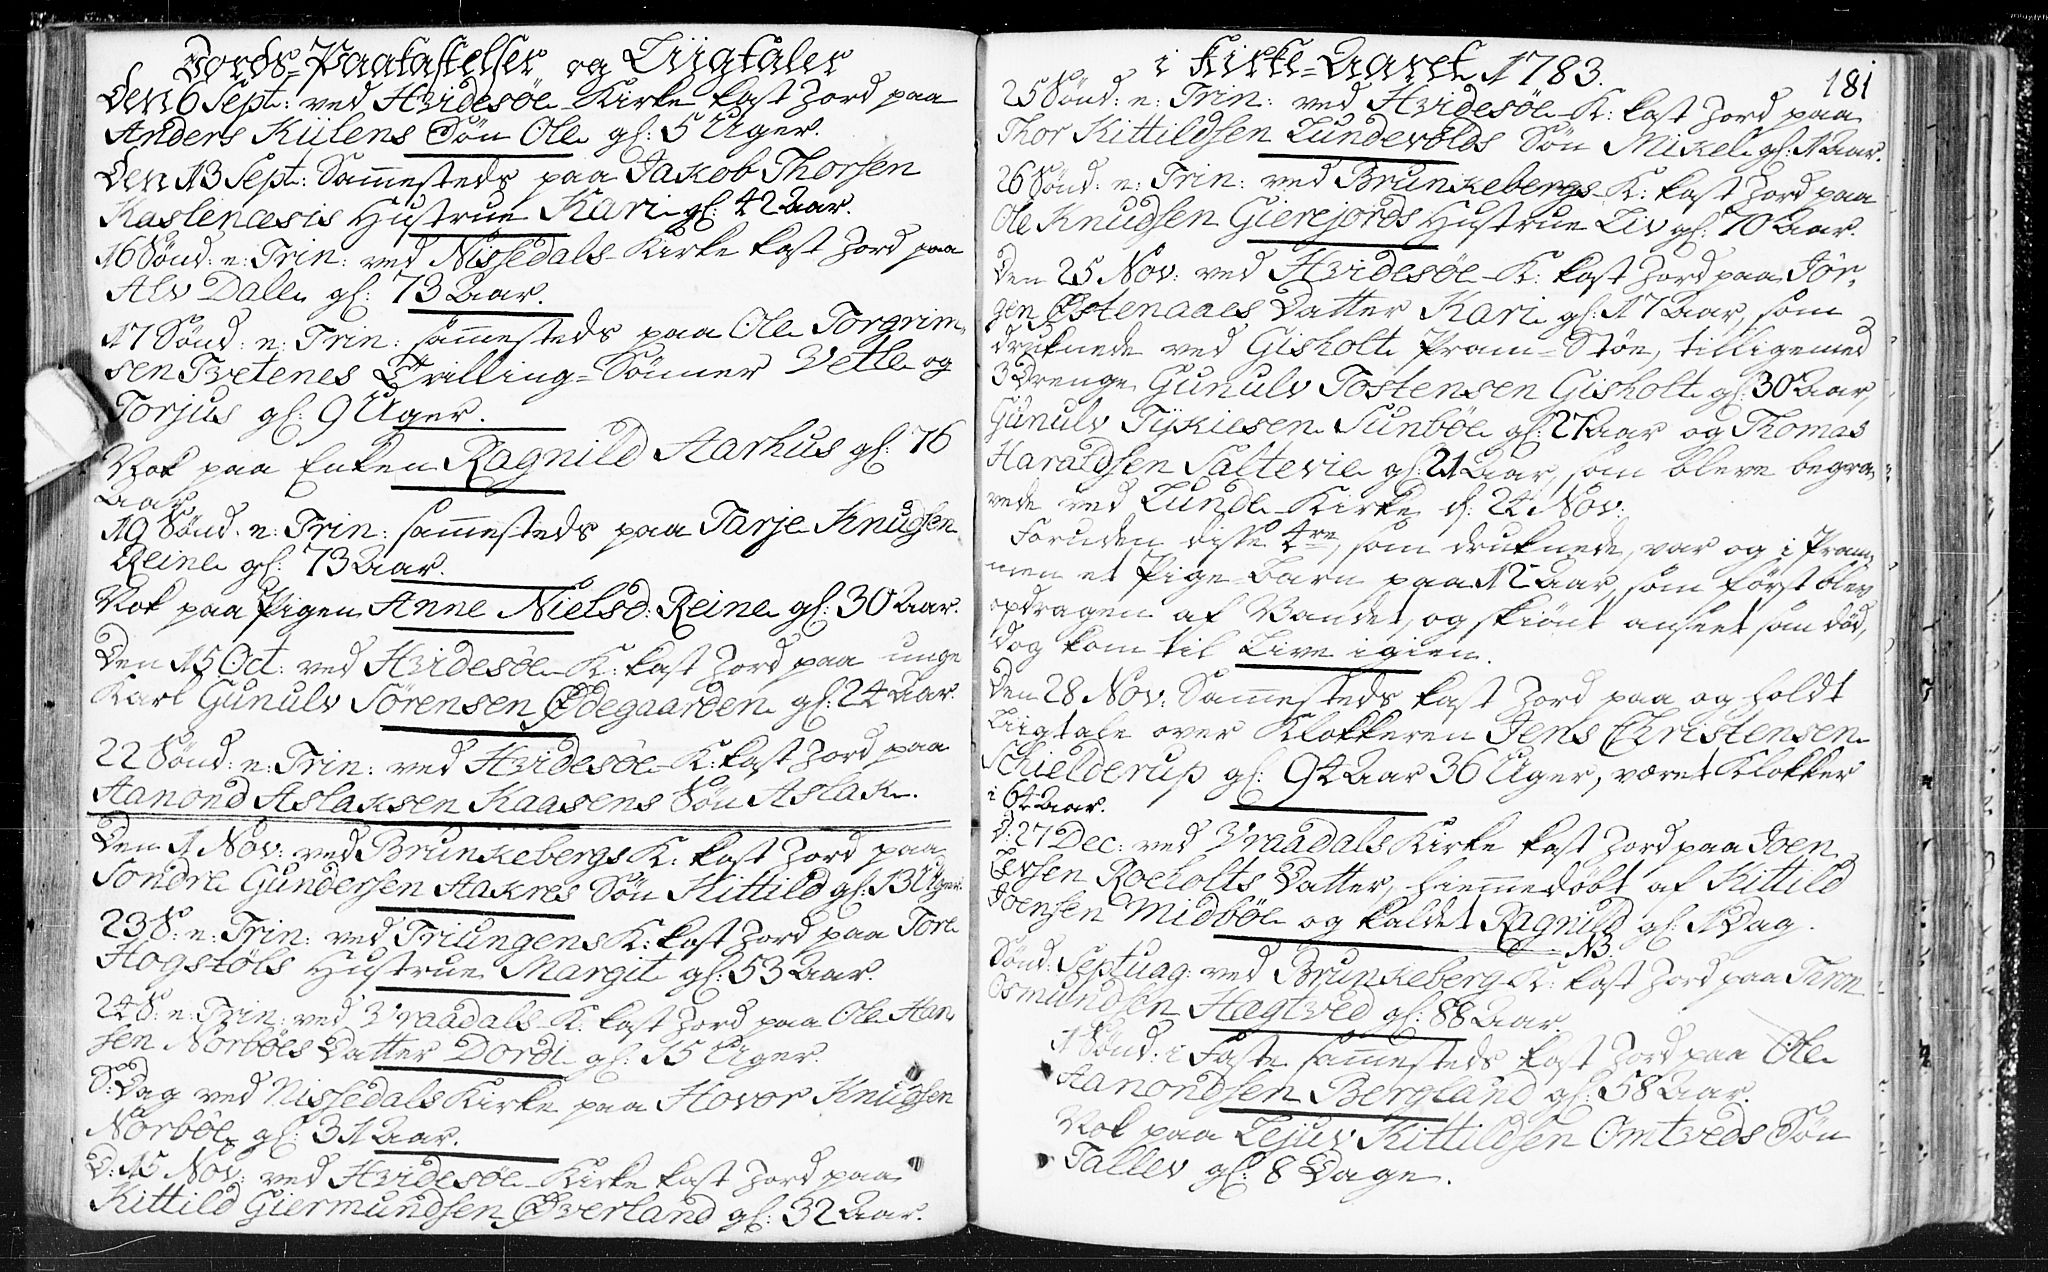 Jords-Paakastelser og Liigtaler
Den 6 Sept: ved Hvidesøe Kirke kast Jord paa
Anders Kiilens Søn Ole gl: 5 Uger.
Den 13 Sept: Sammesteds paa Jakob Thorsen
Kaslenæsis Hustrue Kari gl: 42 Aar.
16 Sønd: e: Trin: ved Nissedals Kirke kast Jord paa
Alv Dale gl: 73 Aar.
17 Sønd: e: Trin: sammesteds paa Ole Torgrim
sen Tvetenes Tvilling-Sønner Vetle og
Torjus gl: 9 Uger.
Nok paa Enken Ragnild Aarhus gl: 76
Aar
19 Sønd: e: Trin: sammesteds paa Tarje Knudsen
Reine gl: 73 Aar.
Nok paa Pigen Anne Nielsd: Reine gl: 30 Aar.
Den 15 Oct: ved Hvidesøe K: kast Jord paa unge
Karl Gunulv Sørensen Ødegaarden gl: 24 Aar.
22 Sønd: e: Trin: ved Hvidesøe K: kast Jord paa
Aanond Aslaksen Kaasens Søn Aslak.
Den 1 Nov: ved Brunkebergs K: kast Jord paa
Sondre Gundersen Aakres Søn Kittild gl: 13 Uger.
23 S: e: Trin: ved Triungens K: kast Jord paa Tore
Hogstøls Hustrue Margit gl: 53 Aar.
24 S: e: Trin: ved Vraadals K: kast Jord paa Ole Han
sen Norbøes Datter Dordi gl: 15 Uger.
S: Dag ved Nissedals Kirke paa Hovor Knudsen
Norbøe gl: 31 Aar.
D: 15 Nov: ved Hvidesøe Kirke kast Jord paa
Kittild Giermundsen Øverland gl: 32 Aar.
i Kirke-Aaret 1783.
181
25 Sønd: e: Trin: ved Hvidesøe K: kast Jord paa
Thor Kittildsen Lundevolds Søn Mikel gl: 1 Aar.
26 Sønd: e: Trin: ved Brunkebergs K: kast Jord paa
Ole Knudsen Gierejords Hustrue Liv gl: 70 Aar.
Den 25 Nov: ved Hvidesøe K: kast Jord paa Jør-
gen Østenaaes Datter Kari gl: 17 Aar, som
druknede ved Gisholt Pram-Støe, tilligemed
3 Drenge Gunulv Tostensen Gisholt gl: 30 Aar,
Gunulv Tykiesen Sunbøe gl: 27 Aar og Thomas
Haraldsen Saltevie gl: 21 Aar, som bleve begra
vede ved Lunde Kirke d: 24 Nov:
Foruden disse 4re, som druknede, var og i Pram
men et Pige-Barn paa 12 Aar, som først blev
opdragen af Vandet, og skiønt anseet som død,
dog kom til Live igien.
Den 28 Nov: Sammesteds kast Jord paa og holdt
Liigtale over Klokkeren Jens Christensen
Schielderup gl: 94 Aar 36 Uger, været Klokker
i 64 Aar.
D: 27 Dec: ved Vraadals Kirke kast Jord paa Joen
Roeholts Datter, hiemmedøbt af Kittild
Joensen Midbøe og kaldet Ragnild gl: 1 Dag.
NB
Sønd: Septuag: ved Brunkeberg K: kast Jord paa Thron
Osmundsen Hægtved gl: 88 Aar.
1 Sønd: i Faste sammesteds kast Jord paa Ole
Aanondsen Bergland gl: 58 Aar.
Nok paa Lejuv Kittildsen Omtveds Søn
Tallev gl: 8 Dage.